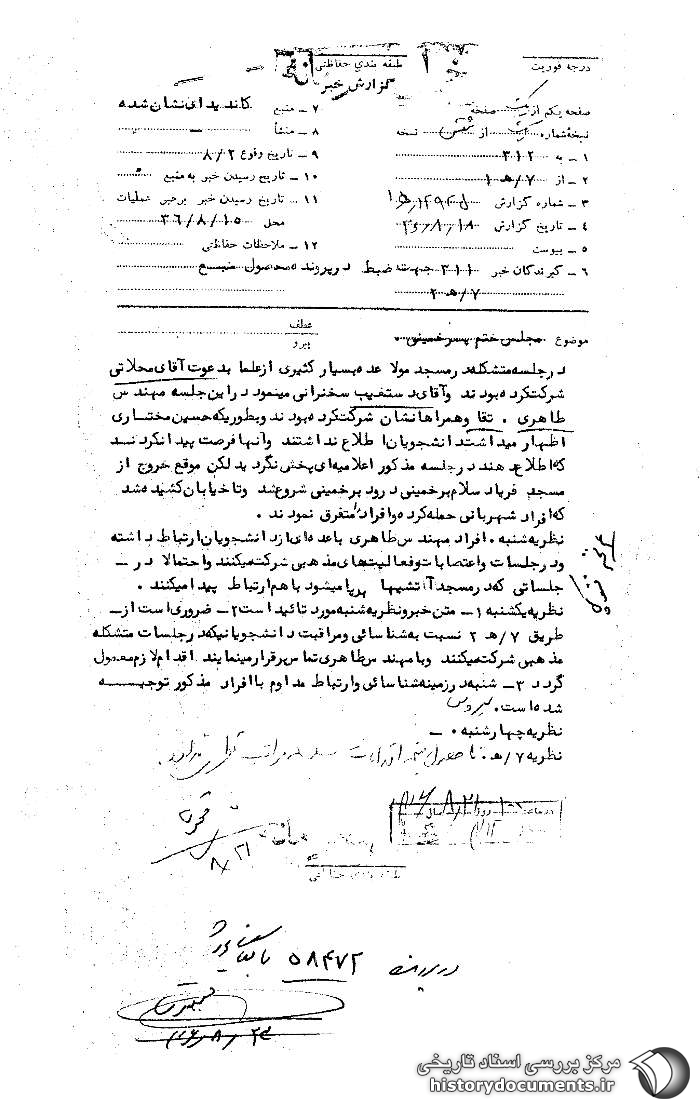 درجه فوریت
طبقه بندی حفاظتی
گزارش خبر
صفحه یکم از یک صفحه
نسخه شماره از شش نسخه
۱ ـ به ۳۱۲
۲ ـ از ۷/ه ۱
۳ ـ شماره گزارش
۴ ـ تاریخ گزارش ۳۶/۸/۱۸
۵ ـ پیوست
۶ ـ گیرندگان خبر ۳۱۱ جهت ضبط در پرونده محصول منبع
۷/ه ۲
۷ ـ منبع کاندیدای نشان شده
۸ ـ منشأ
۹ ـ تاریخ وقوع ۸/۲
۱۰ ـ تاریخ رسیدن خبر به منبع
۱۱ ـ تاریخ رسیدن خبر برهبر عملیات
محل ۳۶/۸/۱۵
۱۲ ـ ملاحظات حفاظتی
موضوع مجلس ختم پسر خمینی .
عطف
پیرو
در جلسه متشکله در مسجد مولا عده بسیار کثیری از علما بدعوت آقای محلاتی
شرکت کرده بودند وآقای دستغیب سخنرانی مینمود دراین جلسه مهندس
طاهری . تقا وهمراهانشان شرکت کرده بودند وبطوریکه حسین مختاری
اظهار میداشت دانشجویان اطلاع نداشتند وآنها فرصت پیدا نکردند
که اطلاع دهند در جلسه مذکور اعلامیه ای پخش نگردید لکن موقع خروج از
مسجد فریاد سلام بر خمینی درود بر خمینی شروع شد وتا خیابان کشیده شد
که افراد شهربانی حمله کرده وافراد متفرق نمودند .
نظریه شنبه . افراد مهندس طاهری با عده ای از دانشجویان ارتباط داشته
ودر جلسات واعتصابات وفعالیتهای مذهبی شرکت میکنند واحتمالا در ـ
جلساتی که در مسجد آتشیها برپا میشود با هم ارتباط پیدا میکنند .
نظریه یکشنبه ۱ ـ متن خبر ونظریه شنبه مورد تائید است ۲ ـ ضروری است از ـ
طریق ۷/ه ۲ نسبت به شناسائی ومراقبت دانشجویانیکه در جلسات متشکله
مذهبی شرکت میکنند وبا مهندس طاهری تماس برقرار مینمایند اقدام لازم معمول
گردد ۳ ـ شنبه در زمینه شناسائی وارتباط مداوم با افراد مذکور توجیه
شده است . سیروس
نظریه چهارشنبه . ـ
نظریه ۷/ه . تا حصول نتیجه
۸/۲۱
در پرونده ۵۸۴۷۲ بایگانی شود
۳۶/۸/۲۳
مرکز بررسی اسناد تاریخی
historydocuments.ir